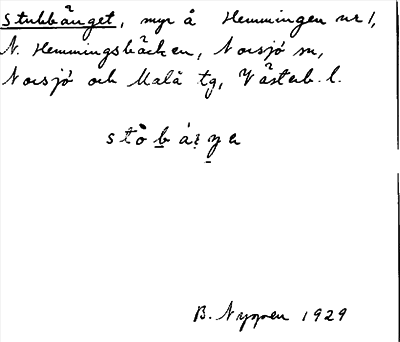 Stubbänget, myr å Hemmingen nr 1,
N. Hemmingsbäcken, Norsjö sn,
Norsjö och Malå tg, Västerb. l.
B. Nyman 1929